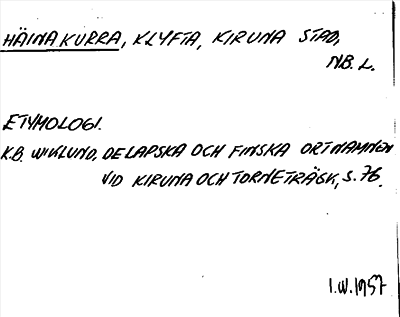 HÄINAKURRA, KLYFTA, KIRUNA STAD,
NB. L.
ETYMOLOGI.
K.B. WIKLUND, DE LAPSKA OCH FINSKA ORTNAMNEN
VID KIRUNA OCH TORNETRÄSK, S. 76.
I.W. 1957